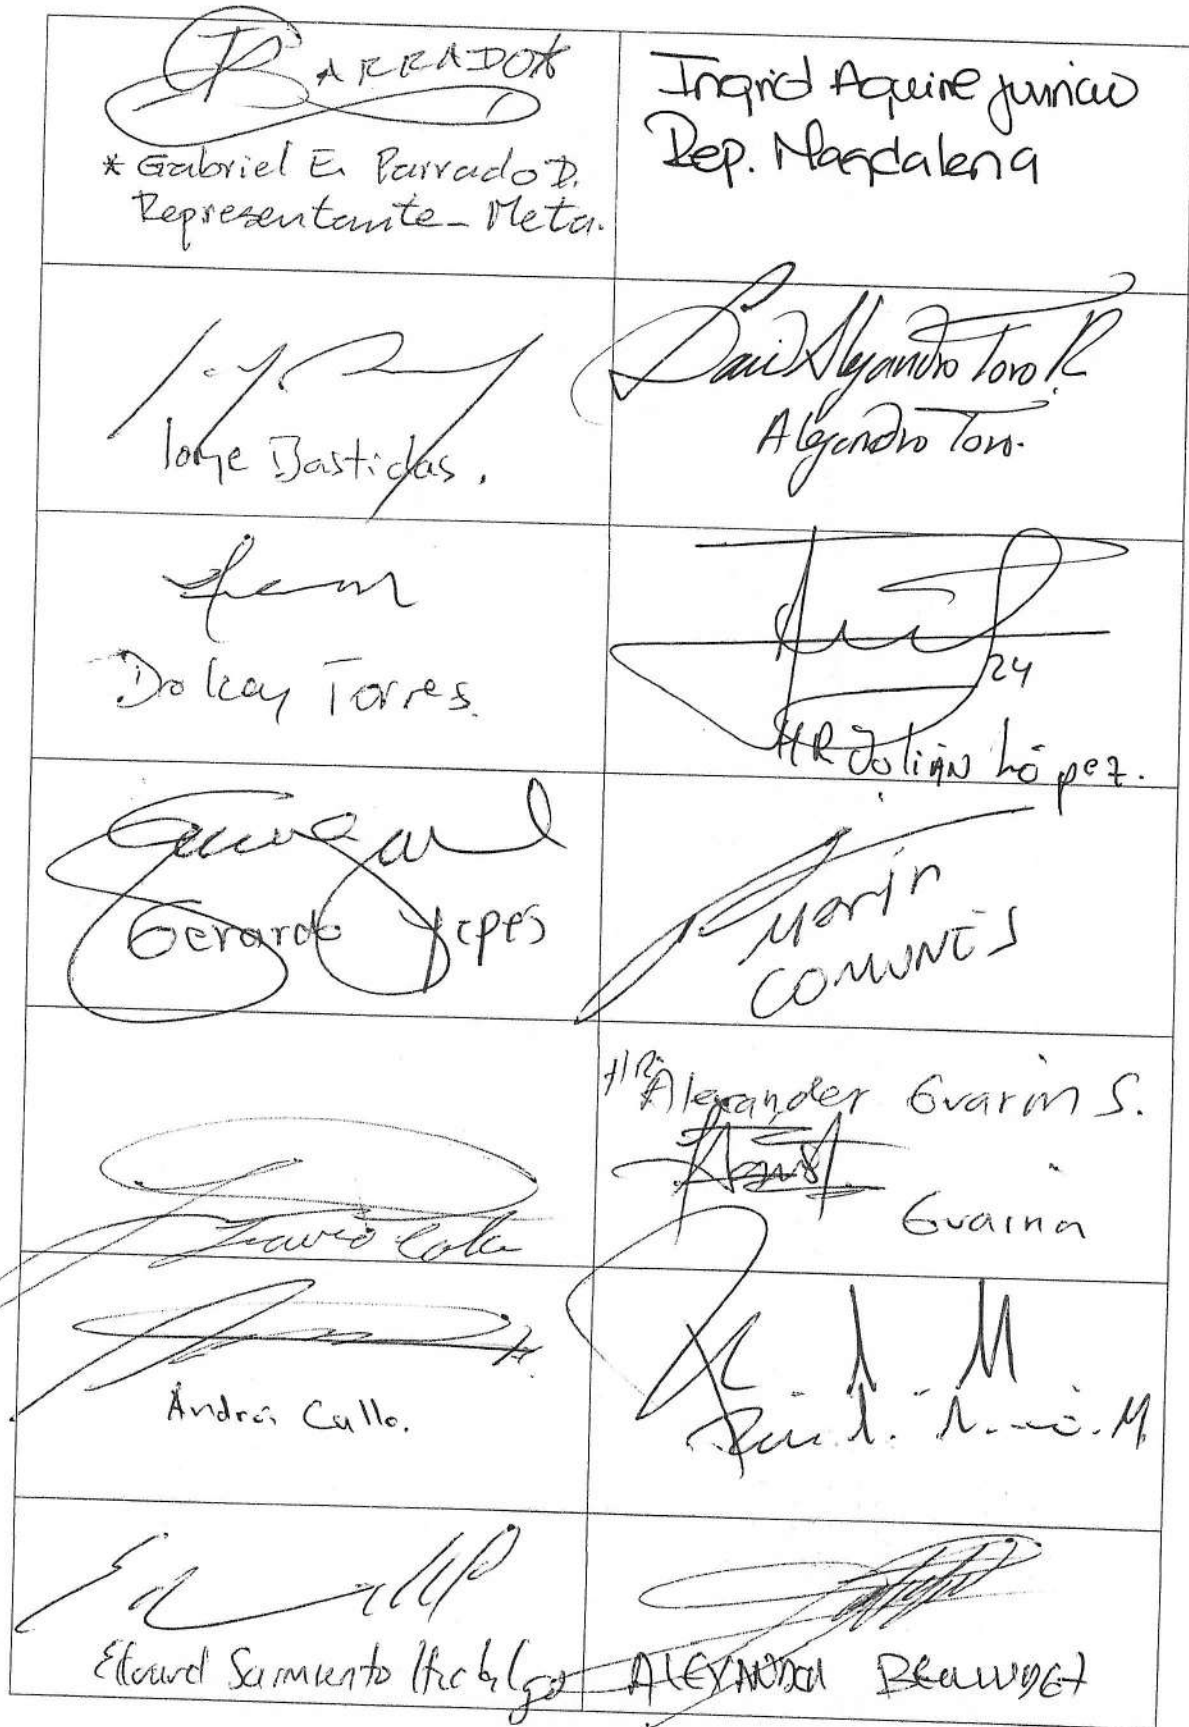 PARRADO*
* Gabriel E. Parrado D.
Representante - Meta.
Ingrid Aguirre Juvinao
Rep. Magdalena
Jorge Bastidas.
David Alejandro Toro R
Alejandro Toro.
Dolcey Torres.
24
HR Julián López.
Gerardo Yepes
Marín
COMUNES
HR Alexander Guarín S.
Guainía
Andrés Calle.
Eduard Sarmiento Hidalgo